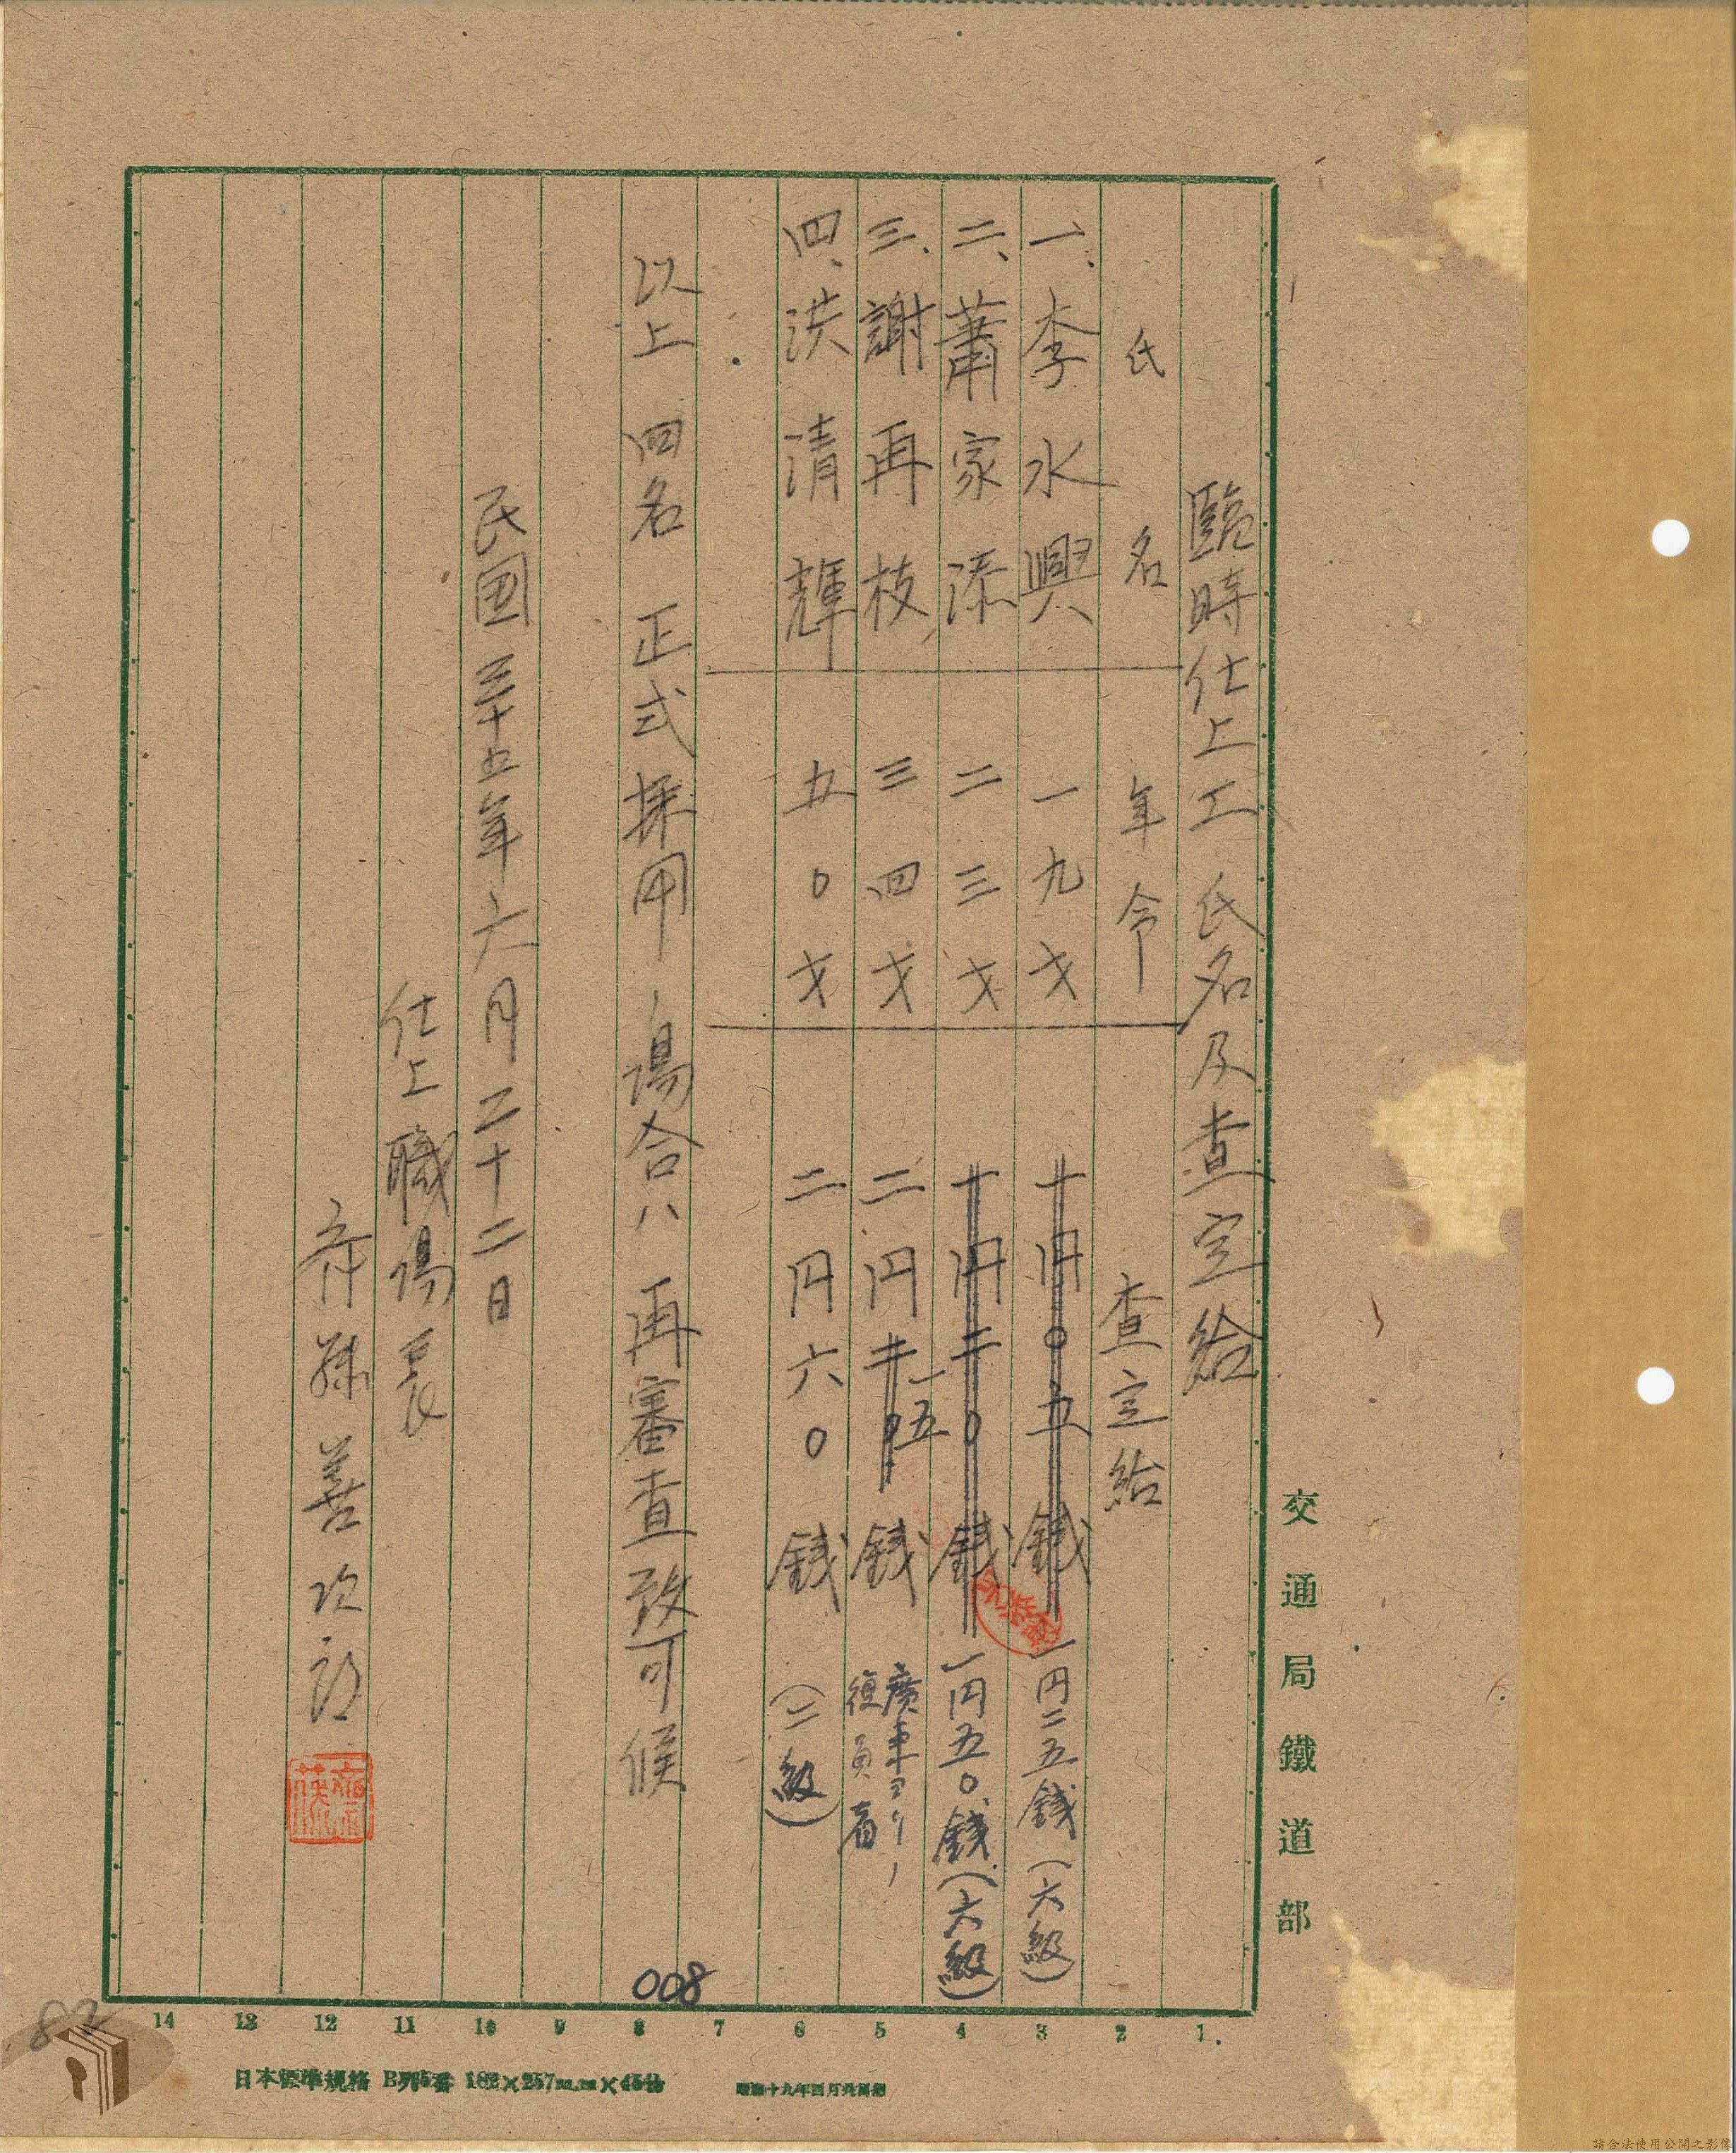 臨時仕上工氏名及査定給
氏名 年令 査定給
一、李水興 一九才 十円〇五銭 一円二五銭(六級)
二、蕭家添 二三才 十円二〇銭 一円五〇銭(六級)
三、謝再枝 三四才 二円二〇 一五銭 廣東ヨリノ復員者
四、洪清輝 五〇才 二円六〇銭 (二級)
以上四名正式採用ノ場合ハ再審査致可候
民國三十五年六月二十二日
仕上職場長
斉藤善次郎
齋藤
交通局鐵道部
008
82
1. 2 3 4 5 6 7 8 9 10 11 12 13 14
日本標準規格 B列5番 182×257m.m×45kg
請合法使用公開之影像